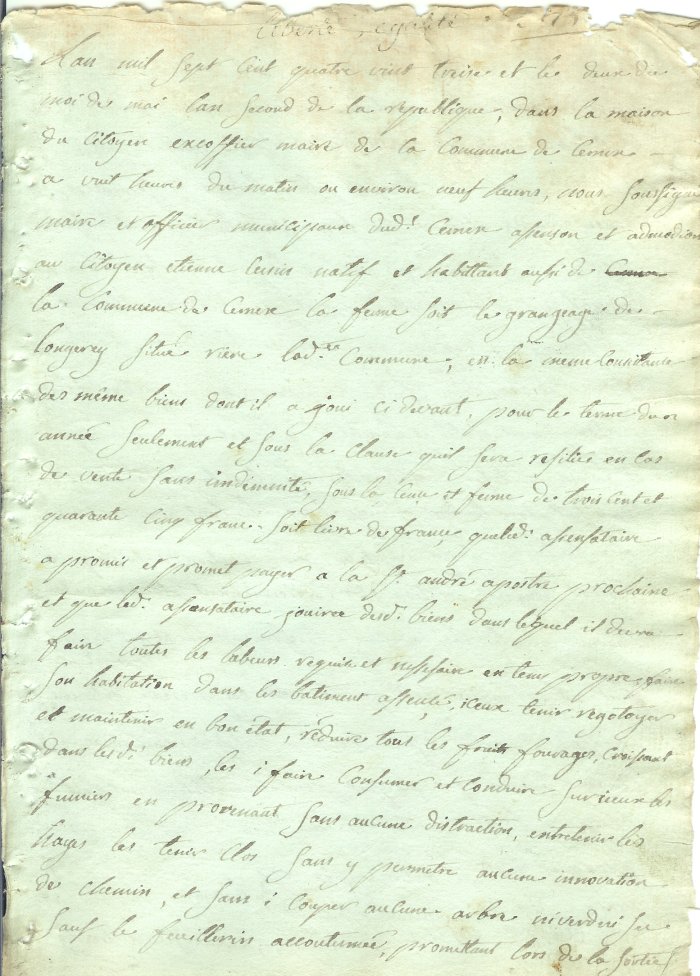 Liberté, egalité
Lan mil sept cent quatre vint treise et le deux du
moi de mai lan second de la republique, dans la maison
du Citoyen excoffier maire de la Commune de Cernex
a vuit heures du matin ou environ neuf heures, nous soussigné
maire et officier municipaux dud.t Cernex asenson et admodion
au Citoyen etienne natif et habittant aussi de Cernex
la Commune de Cernex la ferme soit le grangeage de
Longerey situé riere lad.te Commune, en la meme Consistance
des même biens dont il a joui ci devant, pour le terme dune
année seulement et sous la Clause quil sera resiliée en Cas
de vente sans indemnité, sous la Cense et ferme de trois Cent et
quarante Cinq franc soit livre de france, queled.t asensataire
a promis et promet payer a la S.t andré apostre prochaine
et que led.t asensataire jouirea desd.t biens dans lequel il devra
faire toutes les labeurs requis et nessaire en tems propre, faire
son habitation dans les batiment assensé, iceux tenir regotoyer
et maintenir en bon état, réduire tous les fruits fourages, Croissant
dans lesd.t biens, les i faire Consumer et Conduire sur iceux les
fumiers en provenant sans aucune distraction, entretenir les
hayes les tenir Clos sans y permettre aucune innovation
de chemin, et sans i Couper aucune arbre ni verd ni sec
sauf le feuillerin accoutumée, promettant lors de la sortie